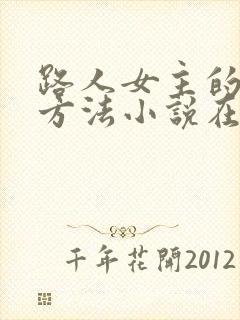 路人女主的
方法小説在
千年花開2012